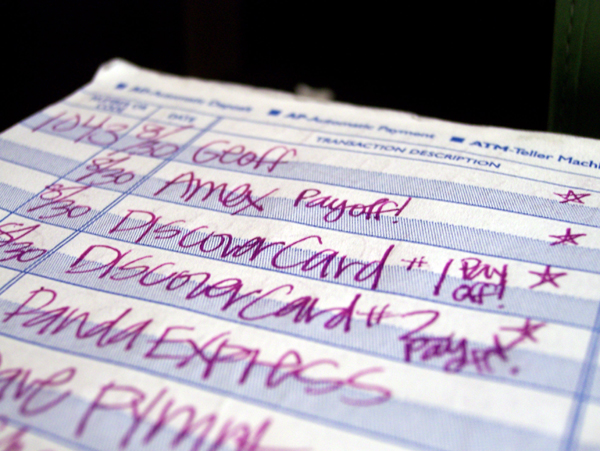 AP-Automatic Deposit AP-Automatic Payment ATM-Teller Machi
CODE DATE TRANSACTION DESCRIPTION
1043 8/30 Geoff
8/30 Amex Payoff!
8/30 DiscoverCard #1 Pay off!
8/30 DiscoverCard #2 Payoff!
Panda Express
ave Pymnt